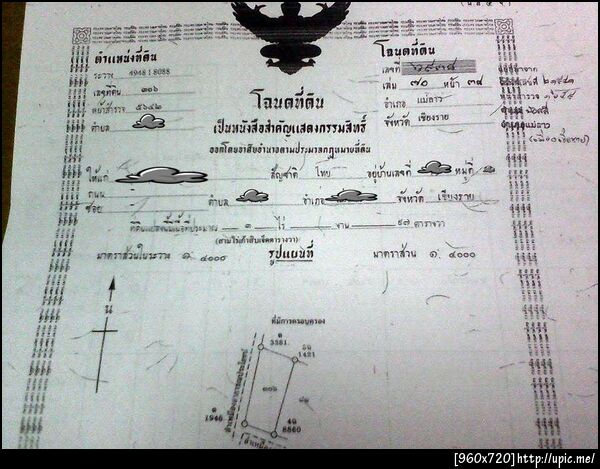 ตำแหน่งที่ดิน
ระวาง 4948 I 8088
เลขที่ดิน ๓๐๖
หน้าสำรวจ ๕๖๔๒
ตำบล
โฉนดที่ดิน
เลขที่
เล่ม ๗๐ หน้า ๓๘
อำเภอ แม่ลาว
จังหวัด เชียงราย
โฉนดที่ดิน
เป็นหนังสือสำคัญแสดงกรรมสิทธิ์
ออกโดยอาศัยอำนาจตามประมวลกฎหมายที่ดิน
ให้แก่ สัญชาติ ไทย อยู่บ้านเลขที่ หมู่ที่
ถนน - ตำบล อำเภอ จังหวัด เชียงราย
ซอย -
ที่ดินแปลงนี้มีเนื้อที่ประมาณ ๓ ไร่ - งาน ๙๗ ตารางวา
(สามไร่เก้าสิบเจ็ดตารางวา)
มาตราส่วนในระวาง ๑ : ๔๐๐๐
รูปแผนที่
มาตราส่วน ๑ : ๔๐๐๐
น
ที่มีการครอบครอง
3381
1421
๓๐๖
1946
8860
[960x720]http://upic.me/